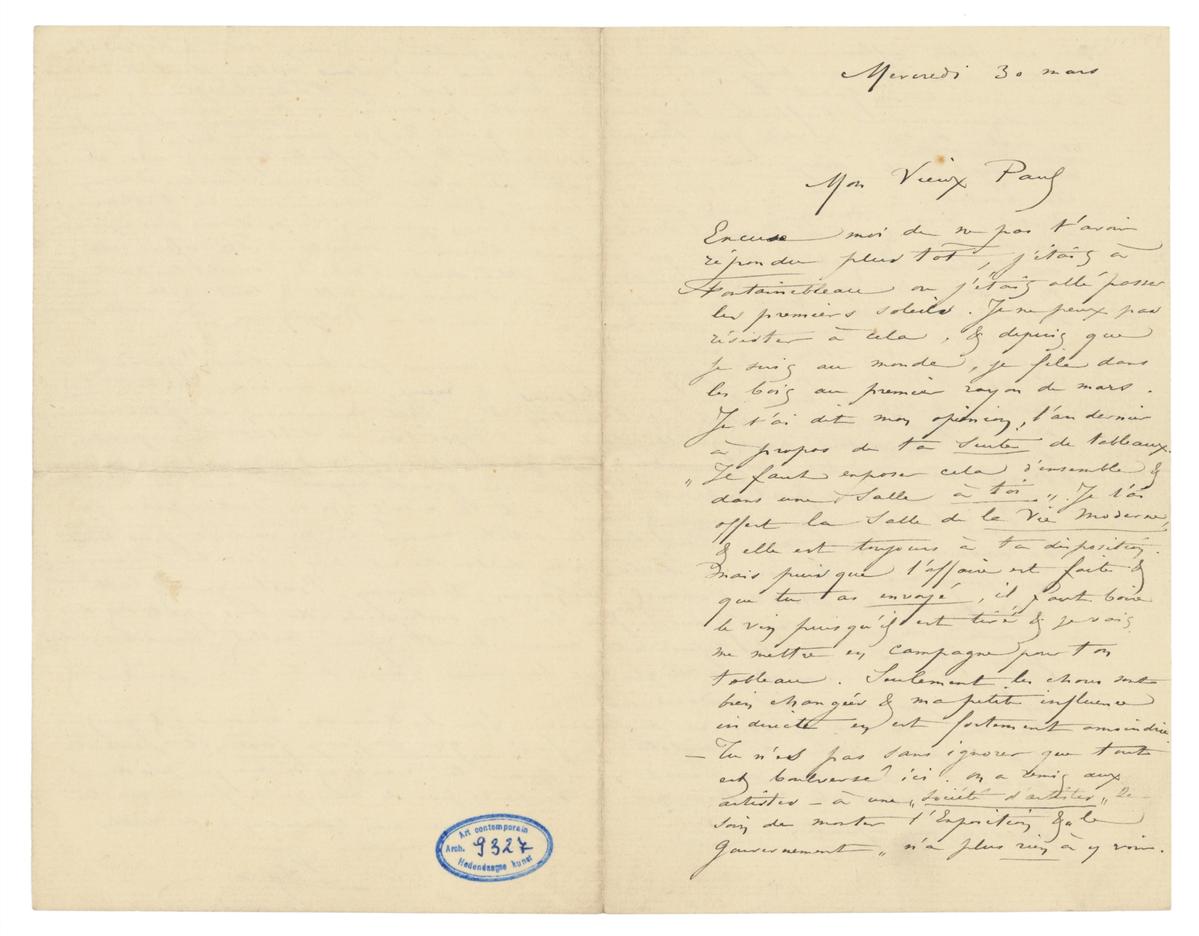 Mercredi 30 mars
Mon Vieux Paul
Excuse moi de ne pas t'avoir
répondu plus tôt, j'étais à
Fontainebleau ou j'étais allé passer
les premiers soleils. Je ne peux pas
résister à cela, & depuis que
je suis au monde, je file dans
les bois au premier rayon de mars.
Je t'ai dit mon opinion, l'an dernier
à propos de ta suite de tableaux.
"Il faut exposer cela d'ensemble &
dans une Salle à toi". Je t'ai
offert la Salle de la Vie Moderne,
& elle est toujours à ta disposition.
Mais puisque l'affaire est faite &
que tu as envoyé, il faut boire
le vin puisqu'il est tiré & je vais
me mettre en campagne pour ton
tableau. Seulement les choses sont
bien changées & ma petite influence
indirecte en est fortement amoindrie.
— Tu n'es pas sans ignorer que tout
est bouleversé ici. on a remis aux
artistes — à une "société d'artistes" le
soin de monter l'Exposition & le
Gouvernement "n'a plus rien à y voir.
Art contemporain
Arch. 9327
Hedendaagse kunst